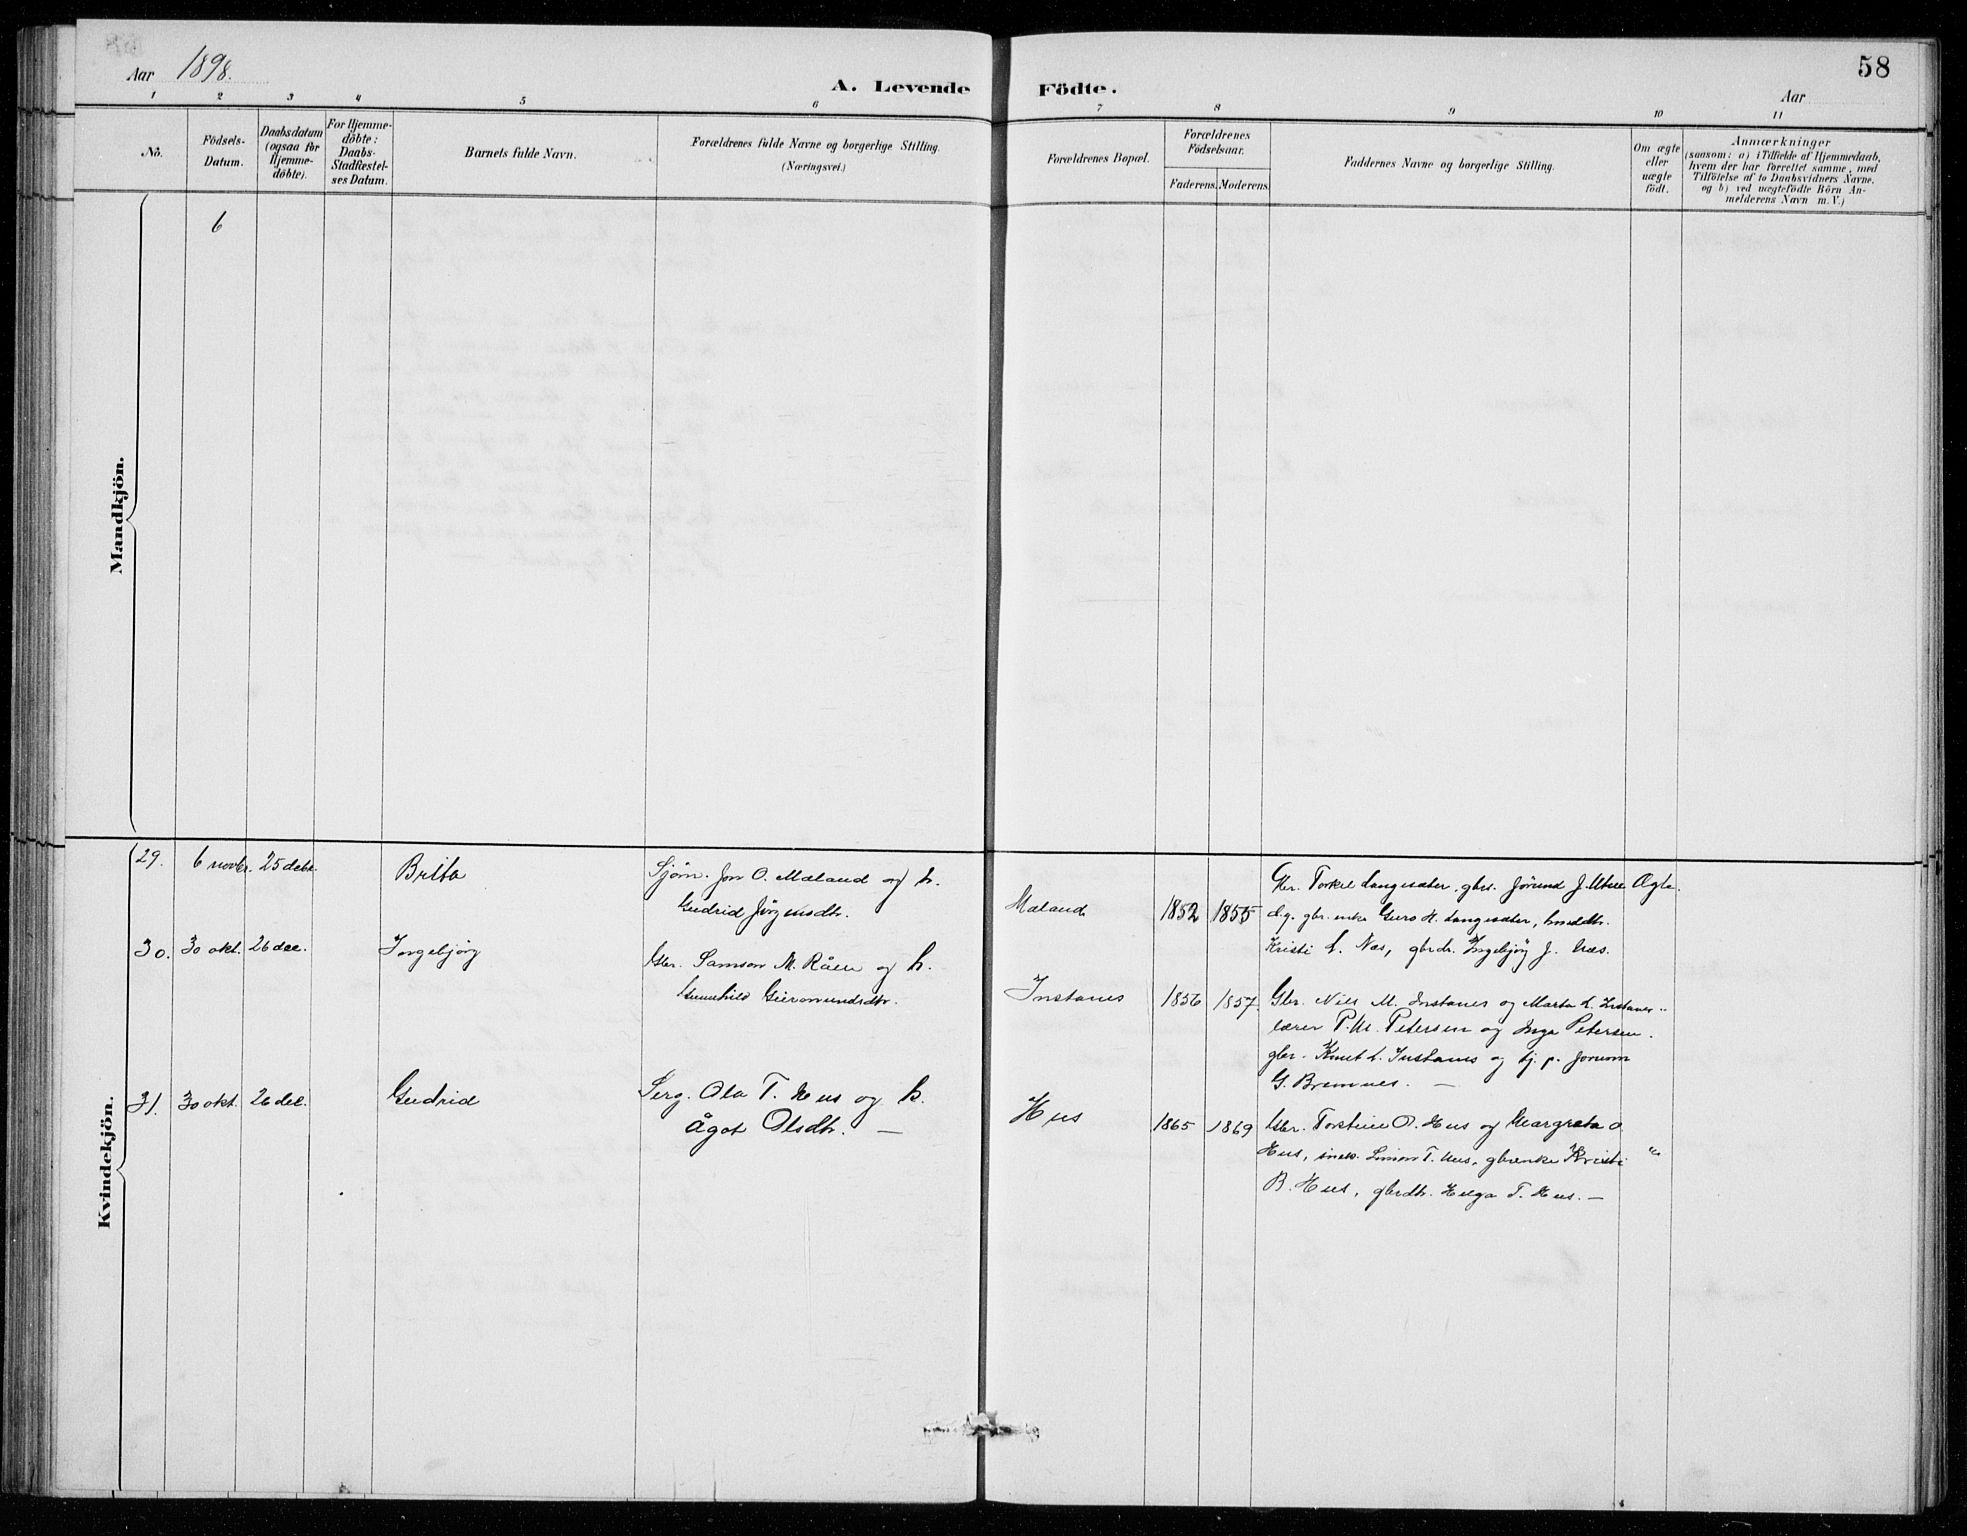 Aar 1898.
A. Levende Födte.
58
Aar
1 2 3 4 5 6 7 8 9 10 11
No.
Födsels-
Datum.
Daabsdatum
(ogsaa for
Hjemme-
döbte).
For Hjemme-
döbte:
Daabs-
Stadfæstel-
ses Datum.
Barnets fulde Navn.
Forældrenes fulde Navne og borgerlige Stilling.
(Næringsvei.)
Forældrenes Bopæl.
Forældrenes
Födselsaar.
Faderens. Moderens.
Faddernes Navne og borgerlige Stilling.
Om ægte
eller
uægte
födt.
Anmærkninger
(saasom: a) i Tilfælde af Hjemmedaab,
hvem der har forrettet samme, med
Tilföielse af to Daabsvidners Navne,
og b) ved uægtefödte Börn An-
melderens Navn m. V.)
Mandkjön.
6
Kvindekjön.
29. 6 novbr. 25 debr. Brita
Sjöm. Jon O. Mæland og h.
Gudrid Jörgensdtr.
Mæland 1852 1855
Gbr. Torkel Langesæter, gbrs. Jörund J. Utne Ægte.
d.y. gbr. enke Guro H. Langesæter,
Kristi L. Næs, gbrdr. Ingebjörg J. Næs.
30. 30 okt. 26 dec. Ingebjörg
Gbr. Samson M. Råen og h.
Gunnhild Geirmundsdtr.
Instanes 1856 1857.
Gbr. Nils M. Instanes og Marta L. Instanes "
lærer P. M. Petersen og Inga Petersen.
gbr. Knut L. Instanes og tj. p. Jorunn
G. Bremnes. —
31. 30 okt. 26 dec. Gudrid
Serg. Ola T. Hus og h.
Ågot Olsdtr. —
Hus 1865 1869
Gbr. Torstein O. Hus og Margreta O.
Hus, Simon T. Hus, gbrenke Kristi "
B. Hus, gbrdtr. Helga T. Hus. —